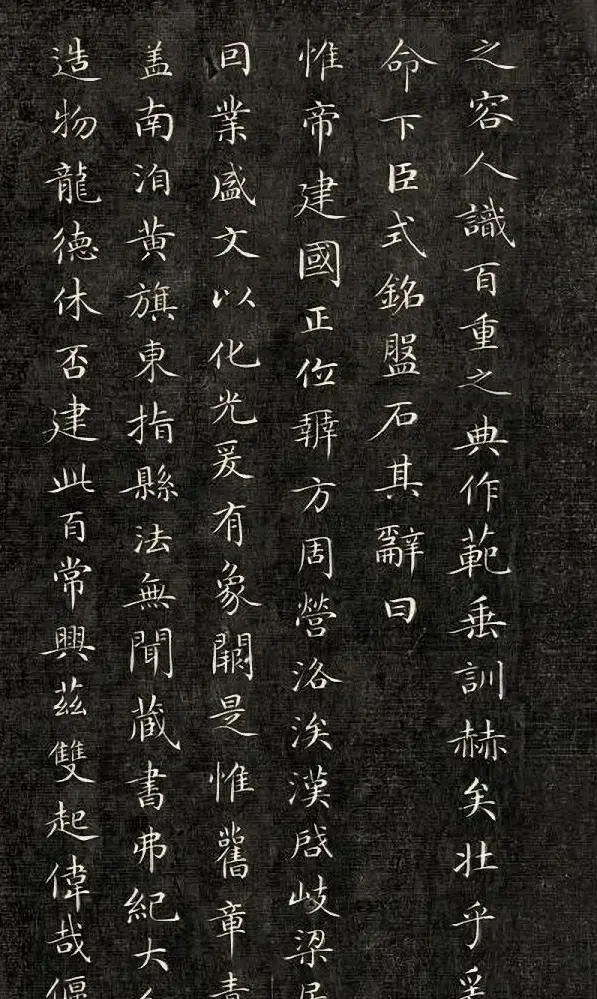 之容人識百重之典作範垂訓赫矣壯乎爰
命下臣式銘盤石其辭曰
惟帝建國正位辨方周營洛涘漢啟岐梁居
因業盛文以化光爰有象闕是惟舊章青
盖南洎黄旗東指縣法無聞藏書弗紀大
造物龍德休否建此百常興茲雙起偉哉偃